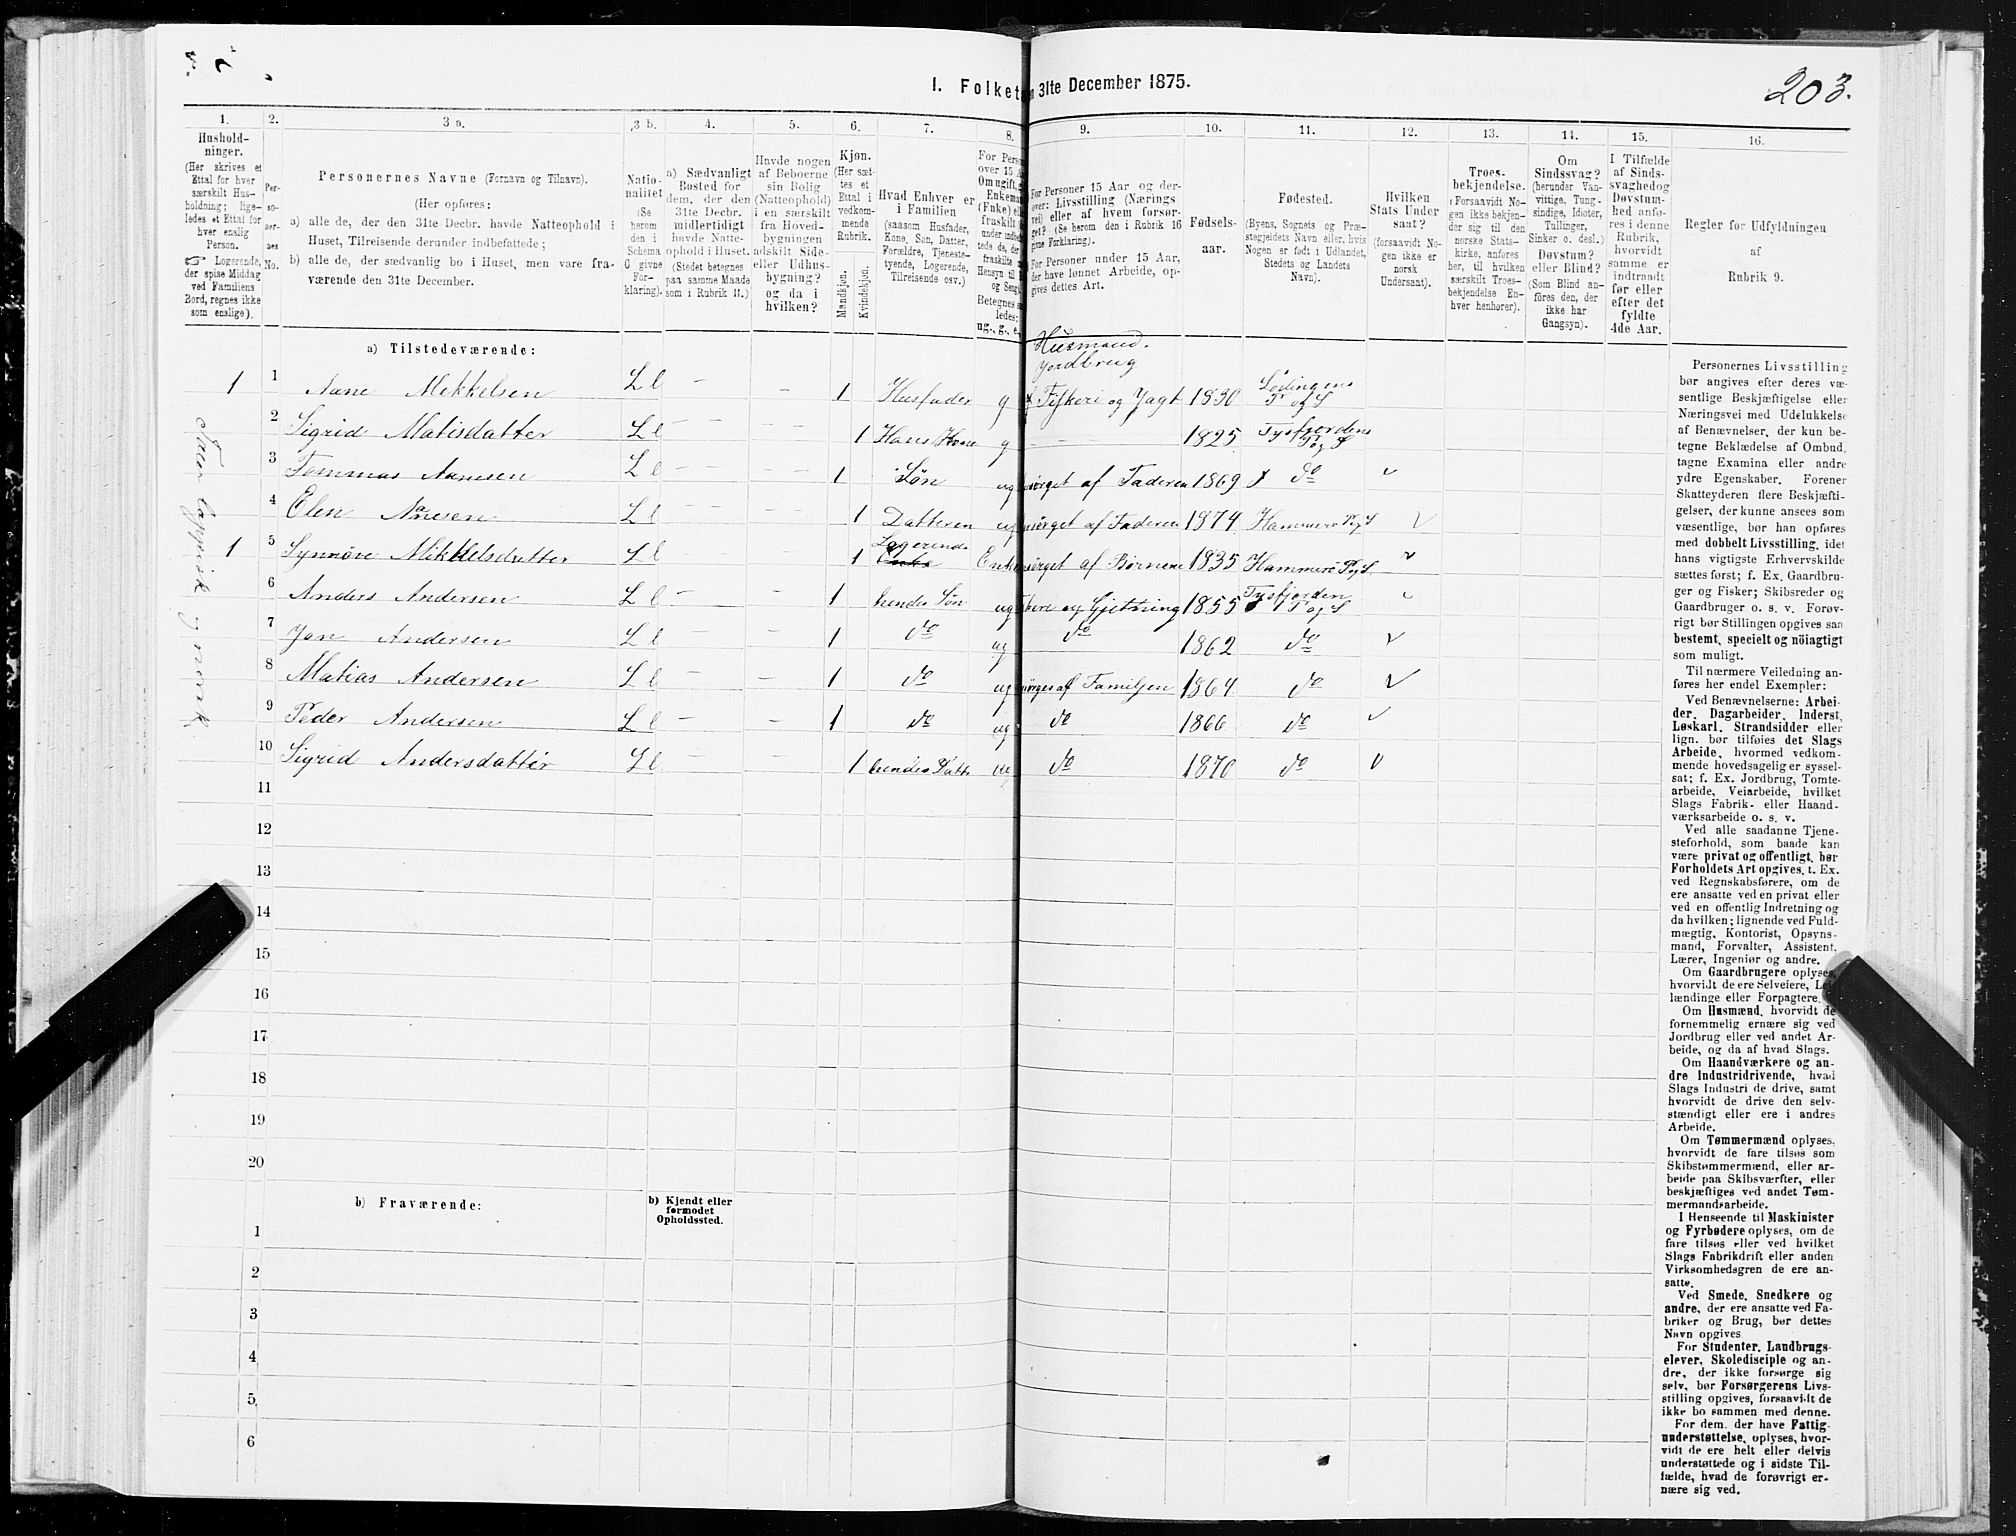 I. Folket n 31te December 1875.
203.
1. 2. 3 a. 3 b. 4. 5. 6. 7. 8. 9. 10. 11. 12. 13. 14. 15. 16.
Hushold-
ninger.
(Her skrives et
Ettal for hver
særskilt Hus-
holdning; lige-
ledes et Ettal for
hver enslig
Person.
Logerende,
der spise Middag
ved Familiens
Bord, regnes ikke
som enslige).
Per-
so-
nes
No.
Personernes Navne (Fornavn og Tilnavn).
(Her opføres:
a) alle de, der den 31te Decbr. havde Natteophold i
Huset, Tilreisende derunder indbefattede;
b) alle de, der sædvanlig bo i Huset, men vare fra-
værende den 31te December.
Natio-
nalitet
(Se
herom
den i
Schema
C givne
For-
klaring).
a) Sædvanligt
Bosted for
dem, der den
31te Decbr.
midlertidigt
havde Natte-
ophold i Huset.
(Stedet betegnes
paa samme Maade
som i Rubrik 11.)
Havde nogen
af Beboerne
sin Bolig
(Natteophold)
i en særskilt
fra Hoved-
bygningen
adskilt Side-
eller Udhus-
bygning?
og da i
hvilken?
Kjøn.
(Her sæt-
tes et
Ettal i
vedkom-
mende
Rubrik.
Mandkjøn.
Kvindekjøn.
Hvad Enhver er
i Familien
(saasom Husfader,
Kone, Søn, Datter,
Forældre, Tjeneste-
tyende, Logerende,
Tilreisende osv.)
For Perso
over 15 A
Om ugift, g
Enkema
(Enke) el
fraskilt
ledes:
ng., g., e.,
For Personer 15 Aar og der-
over: Livsstilling (Nærings
vei) eller af hvem forsør-
get? (Se herom den i Rubrik 16
givne Forklaring).
For Personer under 15 Aar,
der have lønnet Arbeide, op-
gives dettes Art.
Fødsels-
aar.
Fødested.
(Byens, Sognets og Præ-
stegjeldets Navn eller, hvis
Nogen er født i Udlandet,
Stedets og Landets
Navn).
Hvilken
Stats Under
saat?
(forsaavidt No-
gen ikke er
norsk
Undersaat).
Troes-
bekjendelse.
(Forsaavidt No-
gen ikke bekjen-
der sig til den
norske Stats-
kirke, anføres
her, til hvilken
særskilt Troes-
bekjendelse En-
hver henhører).
Om
Sindssvag?
(herunder Van-
vittige, Tung-
sindige, Idioter,
Tullinger,
Sinker o. desl.)
Døvstum?
eller Blind?
(Som Blind an-
føres den, der
ikke har
Gangsyn).
I Tilfælde
af Sinds-
svaghed og
Døvstum-
hed anfø-
res i denne
Rubrik,
hvorvidt
samme er
indtraadt
før eller
efter det
fyldte
4de Aar.
Regler for Udfyldningen
af
Rubrik 9.
a) Tilstedeværende:
Husmand.
Jordbrug
1 1 Aane Mikkelsen L l – – 1 Husfader g Fiskeri og Jagt 1830 Lødingens P og S
2 Sigrid Matisdatter L l – – 1 Hans Kone g – 1825 Tysfjordens P og S
3 Tommas Aanesen L l – – 1 Søn ug sørget af Faderen 1869 do
4 Elen Aanesen L l – – 1 Datteren ug sørget af Faderen 1874 Hammerø P og S
Logerende
1 5 Synnøve Mikkelsdatter L l – – 1 Enke Enke sørget af Børnene 1835 Hammerø P og S
6 Anders Andersen L l – – 1 hendes Søn ug og Gjetning 1855 Tysfjorden P og S
7 Jon Andersen L l – – 1 do ug do 1862 do
8 Matias Andersen L l – – 1 do ug sørges af Familjen 1864 do
9 Peder Andersen L l – – 1 do ug do 1866 do
10 Sigrid Andersdatter L l – – 1 hendes Datt ug do 1870 do
Taler lappisk og norsk.
11
12
13
14
15
16
17
18
19
20
b) Fraværende:
b) Kjendt eller
formodet
Opholdssted.
1
2
3
4
5
6
Personernes Livsstilling
bør angives efter deres væ-
sentlige Beskjæftigelse eller
Næringsvei med Udelukkelse
af Benævnelser, der kun be-
tegne Beklædelse af Ombud,
tagne Examina eller andre
ydre Egenskaber. Forener
Skatteyderen flere Beskjæfti-
gelser, der kunne ansees som
væsentlige, bør han opføres
med dobbelt Livsstilling, idet
hans vigtigste Erhvervskilde
sættes først; f. Ex. Gaardbru-
ger og Fisker; Skibsreder og
Gaardbruger o. s. v. Forøv-
rigt bør Stillingen opgives saa
bestemt, specielt og nöiagtigt
som muligt.
Til nærmere Veiledning an-
føres her endel Exempler:
Ved Benævnelserne: Arbei-
der, Dagarbeider, Inderst,
Løskarl, Strandsidder eller
lign. bør tilføies det Slags
Arbeide, hvormed vedkom-
mende hovedsagelig er syssel-
sat; f. Ex. Jordbrug, Tomte-
arbeide, Veiarbeide, hvilket
Slags Fabrik- eller Haand-
værksarbeide o. s. v.
Ved alle saadanne Tjene-
steforhold, som baade kan
være privat og offentligt, bør
Forholdets Art opgives, t. Ex.
ved Regnskabsførere, om de
ere ansatte ved en privat eller
ved en offentlig Indretning og
da hvilken; lignende ved Fuld-
mægtig, Kontorist, Opsyns-
mand, Forvalter, Assistent,
Lærer, Ingeniør og andre.
Om Gaardbrugere oplyses,
hvorvidt de ere Selveiere, Lei
lændinge eller Forpagtere.
Om Husmænd, hvorvidt de
fornemmelig ernære sig ved
Jordbrug eller ved andet Ar-
beide, og da af hvad Slags.
Om Haandværkere og an-
dre Industridrivende, hvad
Slags Industri de drive, samt
hvorvidt de drive den selv-
stændigt eller ere i andres
Arbeide.
Om Tømmermænd oplyses,
hvorvidt de fare tilsøs som
Skibstømmermænd, eller ar-
beide paa Skibsværfter, eller
beskjæftiges ved andet Tøm-
mermandsarbeide.
I Henseende til Maskinister
og Fyrbødere oplyses, om de
fare tilsøs eller ved hvilket
Slags Fabrikdrift eller anden
Virksomhedsgren de ere an-
satte.
Ved Smede, Snedkere og
andre, der ere ansatte ved Fa-
briker og Brug, bør dettes
Navn opgives
For Studenter, Landbrugs-
elever, Skoledisciple og an-
dre, der ikke forsørge sig
selv, bør Forsørgerens Livs-
stilling opgives, forsaavidt de
ikke bo sammen med denne.
For dem, der have Fattig-
understøttelse, oplyses, hvor-
vidt de ere helt eller delvis
understøttede og i sidste Til-
fælde, hvad de forøvrigt er-
nære sig ved.